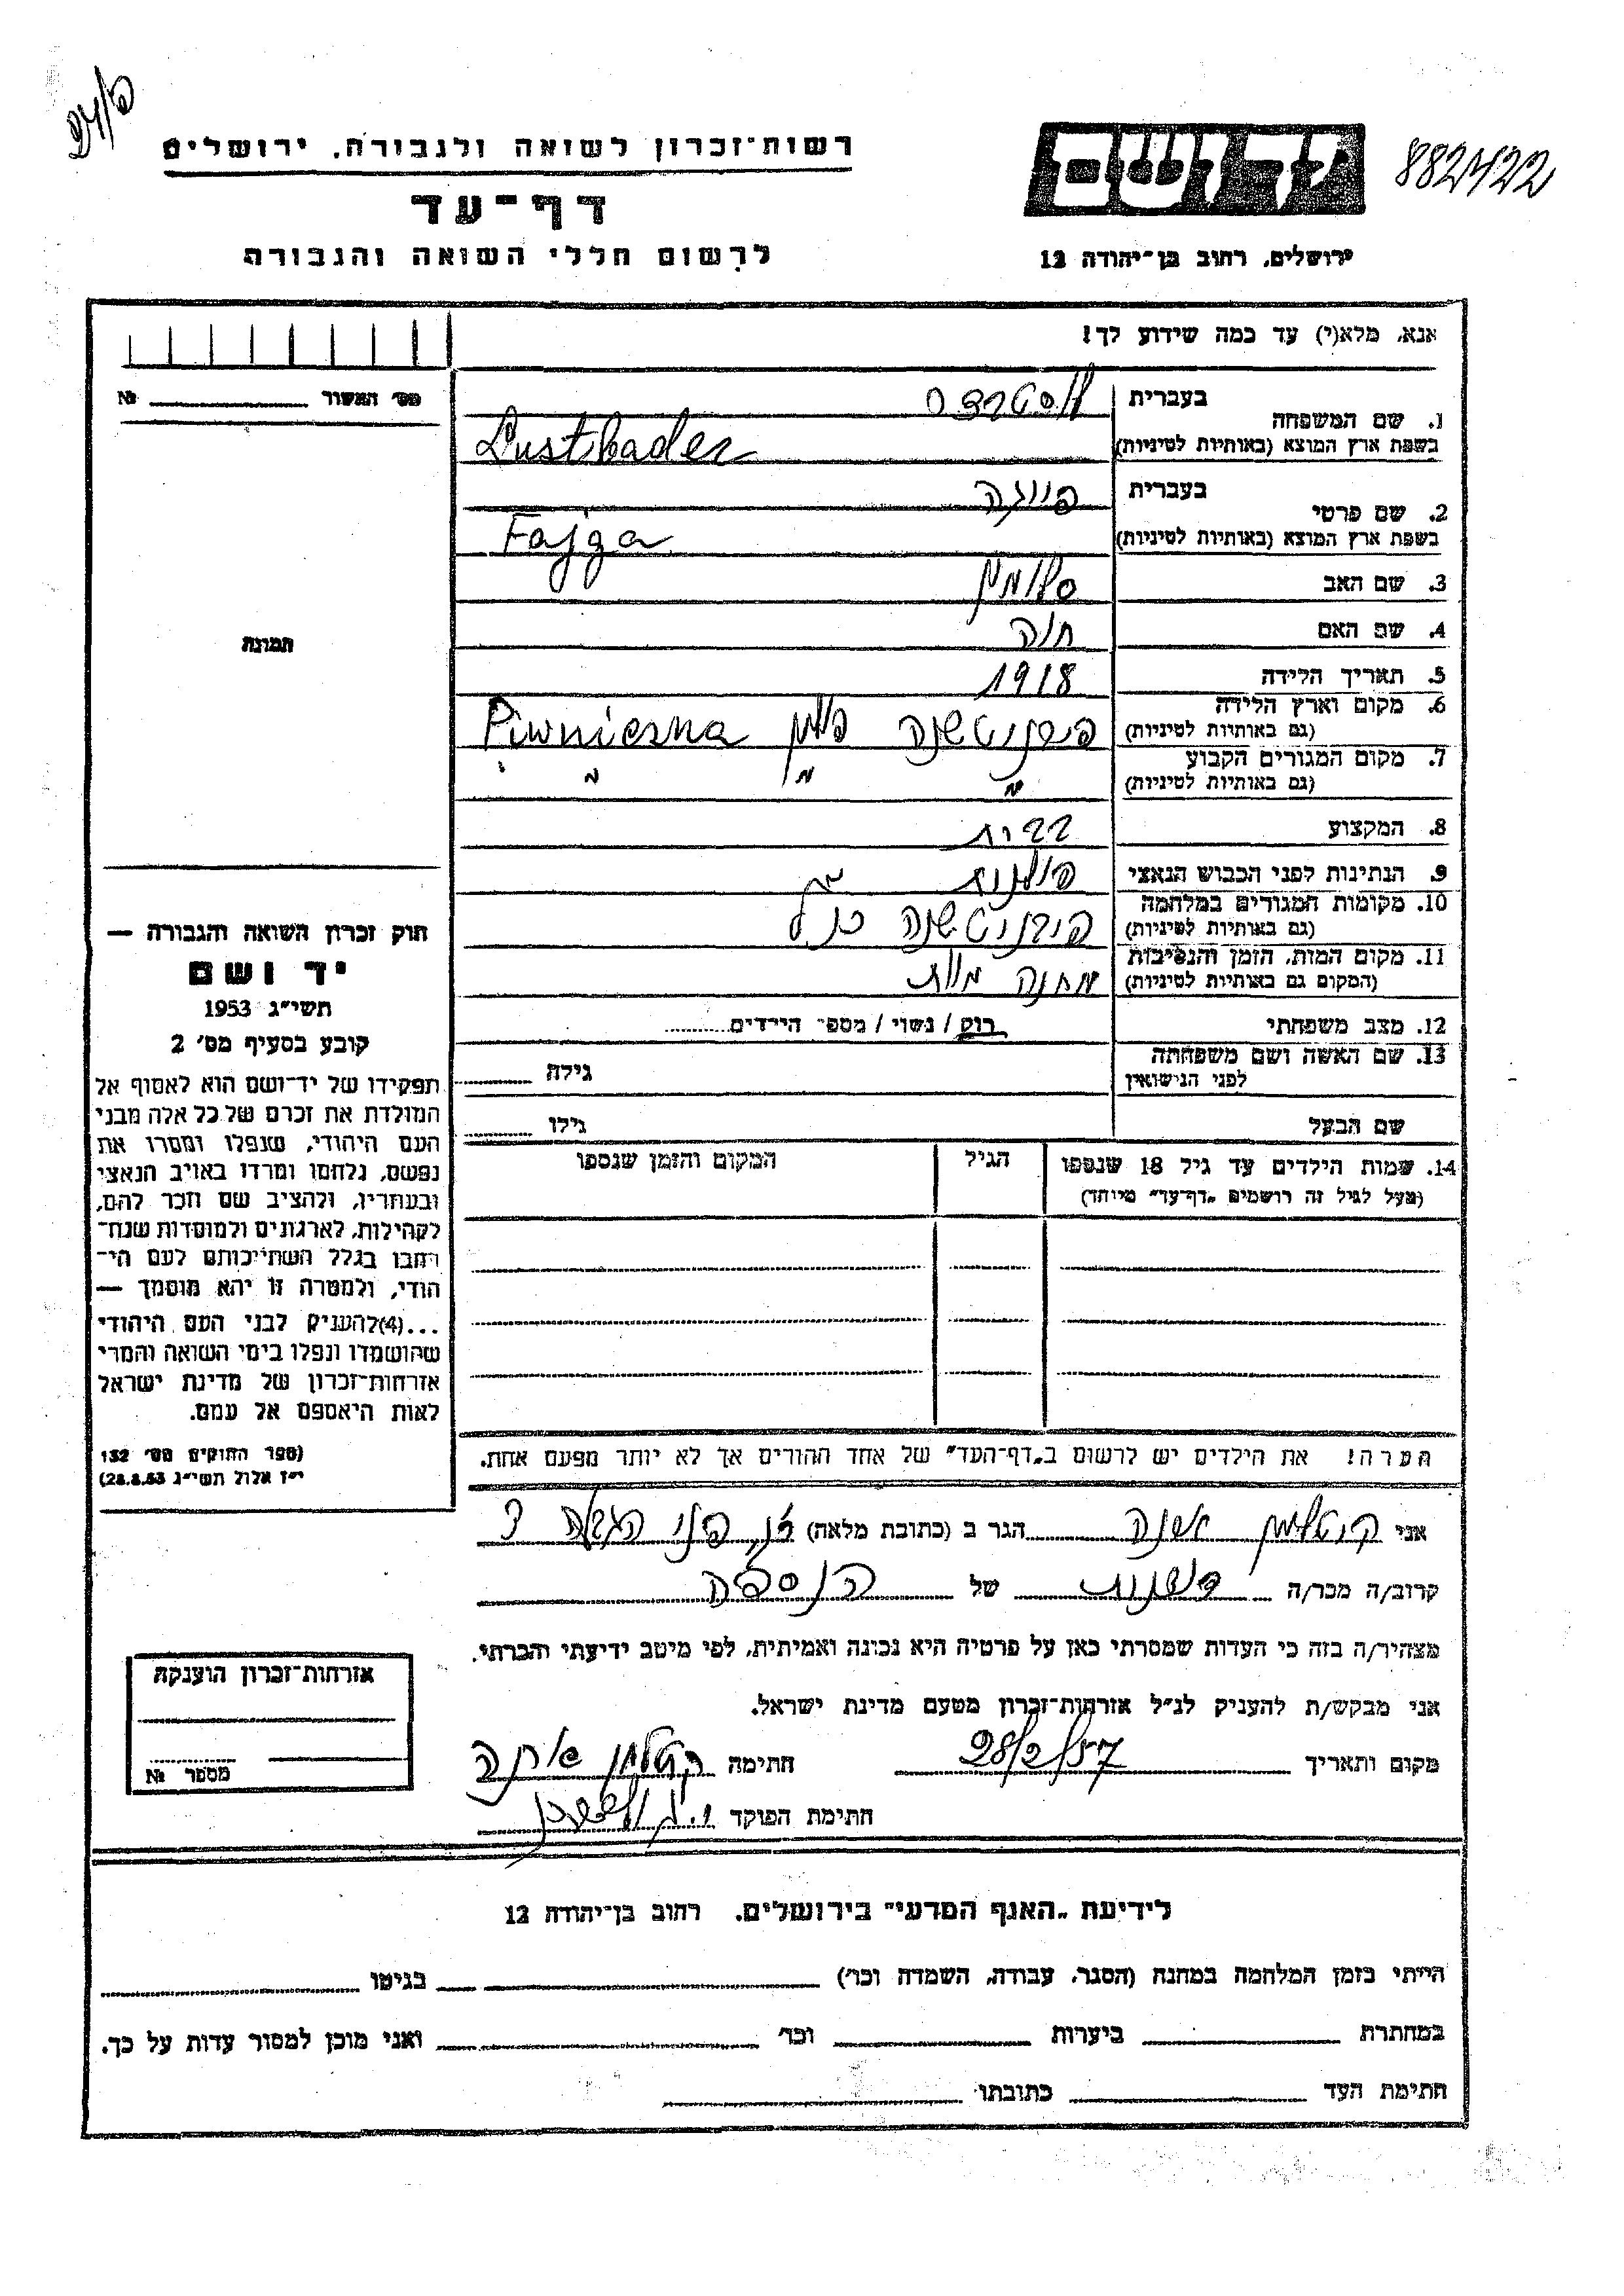 רשות־זכרון לשואה ולגבורה, ירושלים
882422
דף־עד
לרשום חללי השואה והגבורה
ירושלים, רחוב בן־יהודה 12
אנא, מלא(י) עד כמה שידוע לך!
מס׳ האשור №
1. שם המשפחה
בעברית
בשפת ארץ המוצא (באותיות לטיניות) Lustbader
2. שם פרטי
בעברית פייגה
בשפת ארץ המוצא (באותיות לטיניות) Fajga
3. שם האב סלומון
4. שם האם חוה
5. תאריך הלידה 1918
6. מקום וארץ הלידה
(גם באותיות לטיניות) פיבניטשנה פולין Piwniczna
7. מקום המגורים הקבוע
(גם באותיות לטיניות)
8. המקצוע
9. הנתינות לפני הכבוש הנאצי פולנית
10. מקומות המגורים במלחמה
(גם באותיות לטיניות) פיבניטשנה כנ״ל
11. מקום המות, הזמן והנסיבות
(המקום גם באותיות לטיניות) מחנה מות
12. מצב משפחתי רוק / נשוי / מספר הילדים
13. שם האשה ושם משפחתה
לפני הנישואין גילה
שם הבעל גילו
14. שמות הילדים עד גיל 18 שנספו הגיל המקום והזמן שנספו
(מעל לגיל זה רושמים „דף־עד״ מיוחד)
תמונה
חוק זכרון השואה והגבורה —
יד ושם
תשי״ג 1953
קובע בסעיף מס׳ 2
תפקידו של יד־ושם הוא לאסוף אל
המולדת את זכרם של כל אלה מבני
העם היהודי, שנפלו ומסרו את
נפשם, נלחמו ומרדו באויב הנאצי
ובעוזריו, ולהציב שם וזכר להם,
לקהילות, לארגונים ולמוסדות שנח־
רבו בגלל השתייכותם לעם הי־
הודי, ולמטרה זו יהא מוסמך —
...(4)להעניק לבני העם היהודי
שהושמדו ונפלו בימי השואה והמרי
אזרחות־זכרון של מדינת ישראל
לאות היאספם אל עמם.
(ספר החוקים מס׳ 132
י״ז אלול תשי״ג 28.8.53)
הערה! את הילדים יש לרשום ב„דף־העד״ של אחד ההורים אך לא יותר מפעם אחת.
אני הגר ב (כתובת מלאה)
קרוב/ה מכר/ה של הנספה
מצהיר/ה בזה כי העדות שמסרתי כאן על פרטיה היא נכונה ואמיתית, לפי מיטב ידיעתי והכרתי.
אני מבקש/ת להעניק לנ״ל אזרחות־זכרון מטעם מדינת ישראל.
מקום ותאריך 28/2/57 חתימה
חתימת הפוקד
אזרחות־זכרון הוענקה
מספר №
לידיעת „האגף המדעי״ בירושלים, רחוב בן־יהודה 12
הייתי בזמן המלחמה במחנה (הסגר, עבודה, השמדה וכו׳) בגיטו
במחתרת ביערות וכו׳ ואני מוכן למסור עדות על כך.
חתימת העד כתובתו